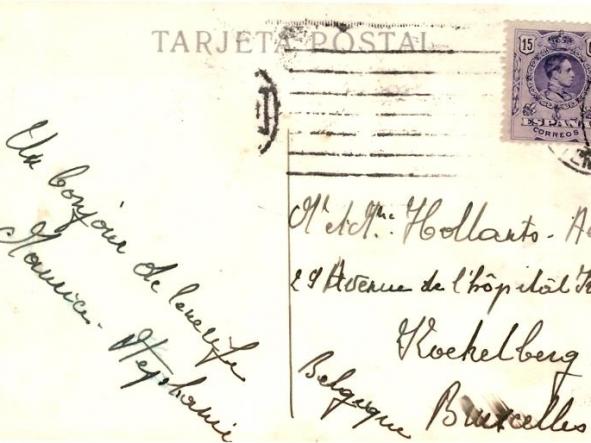 TARJETA POSTAL
15
ESPAÑA
CORREOS
Un bonjour de Tenerife
Maurice - Stéphanie
Mr & Mme Hollants - 
29 Avenue de l'hôpital
Koekelberg
Bruxelles
Belgique